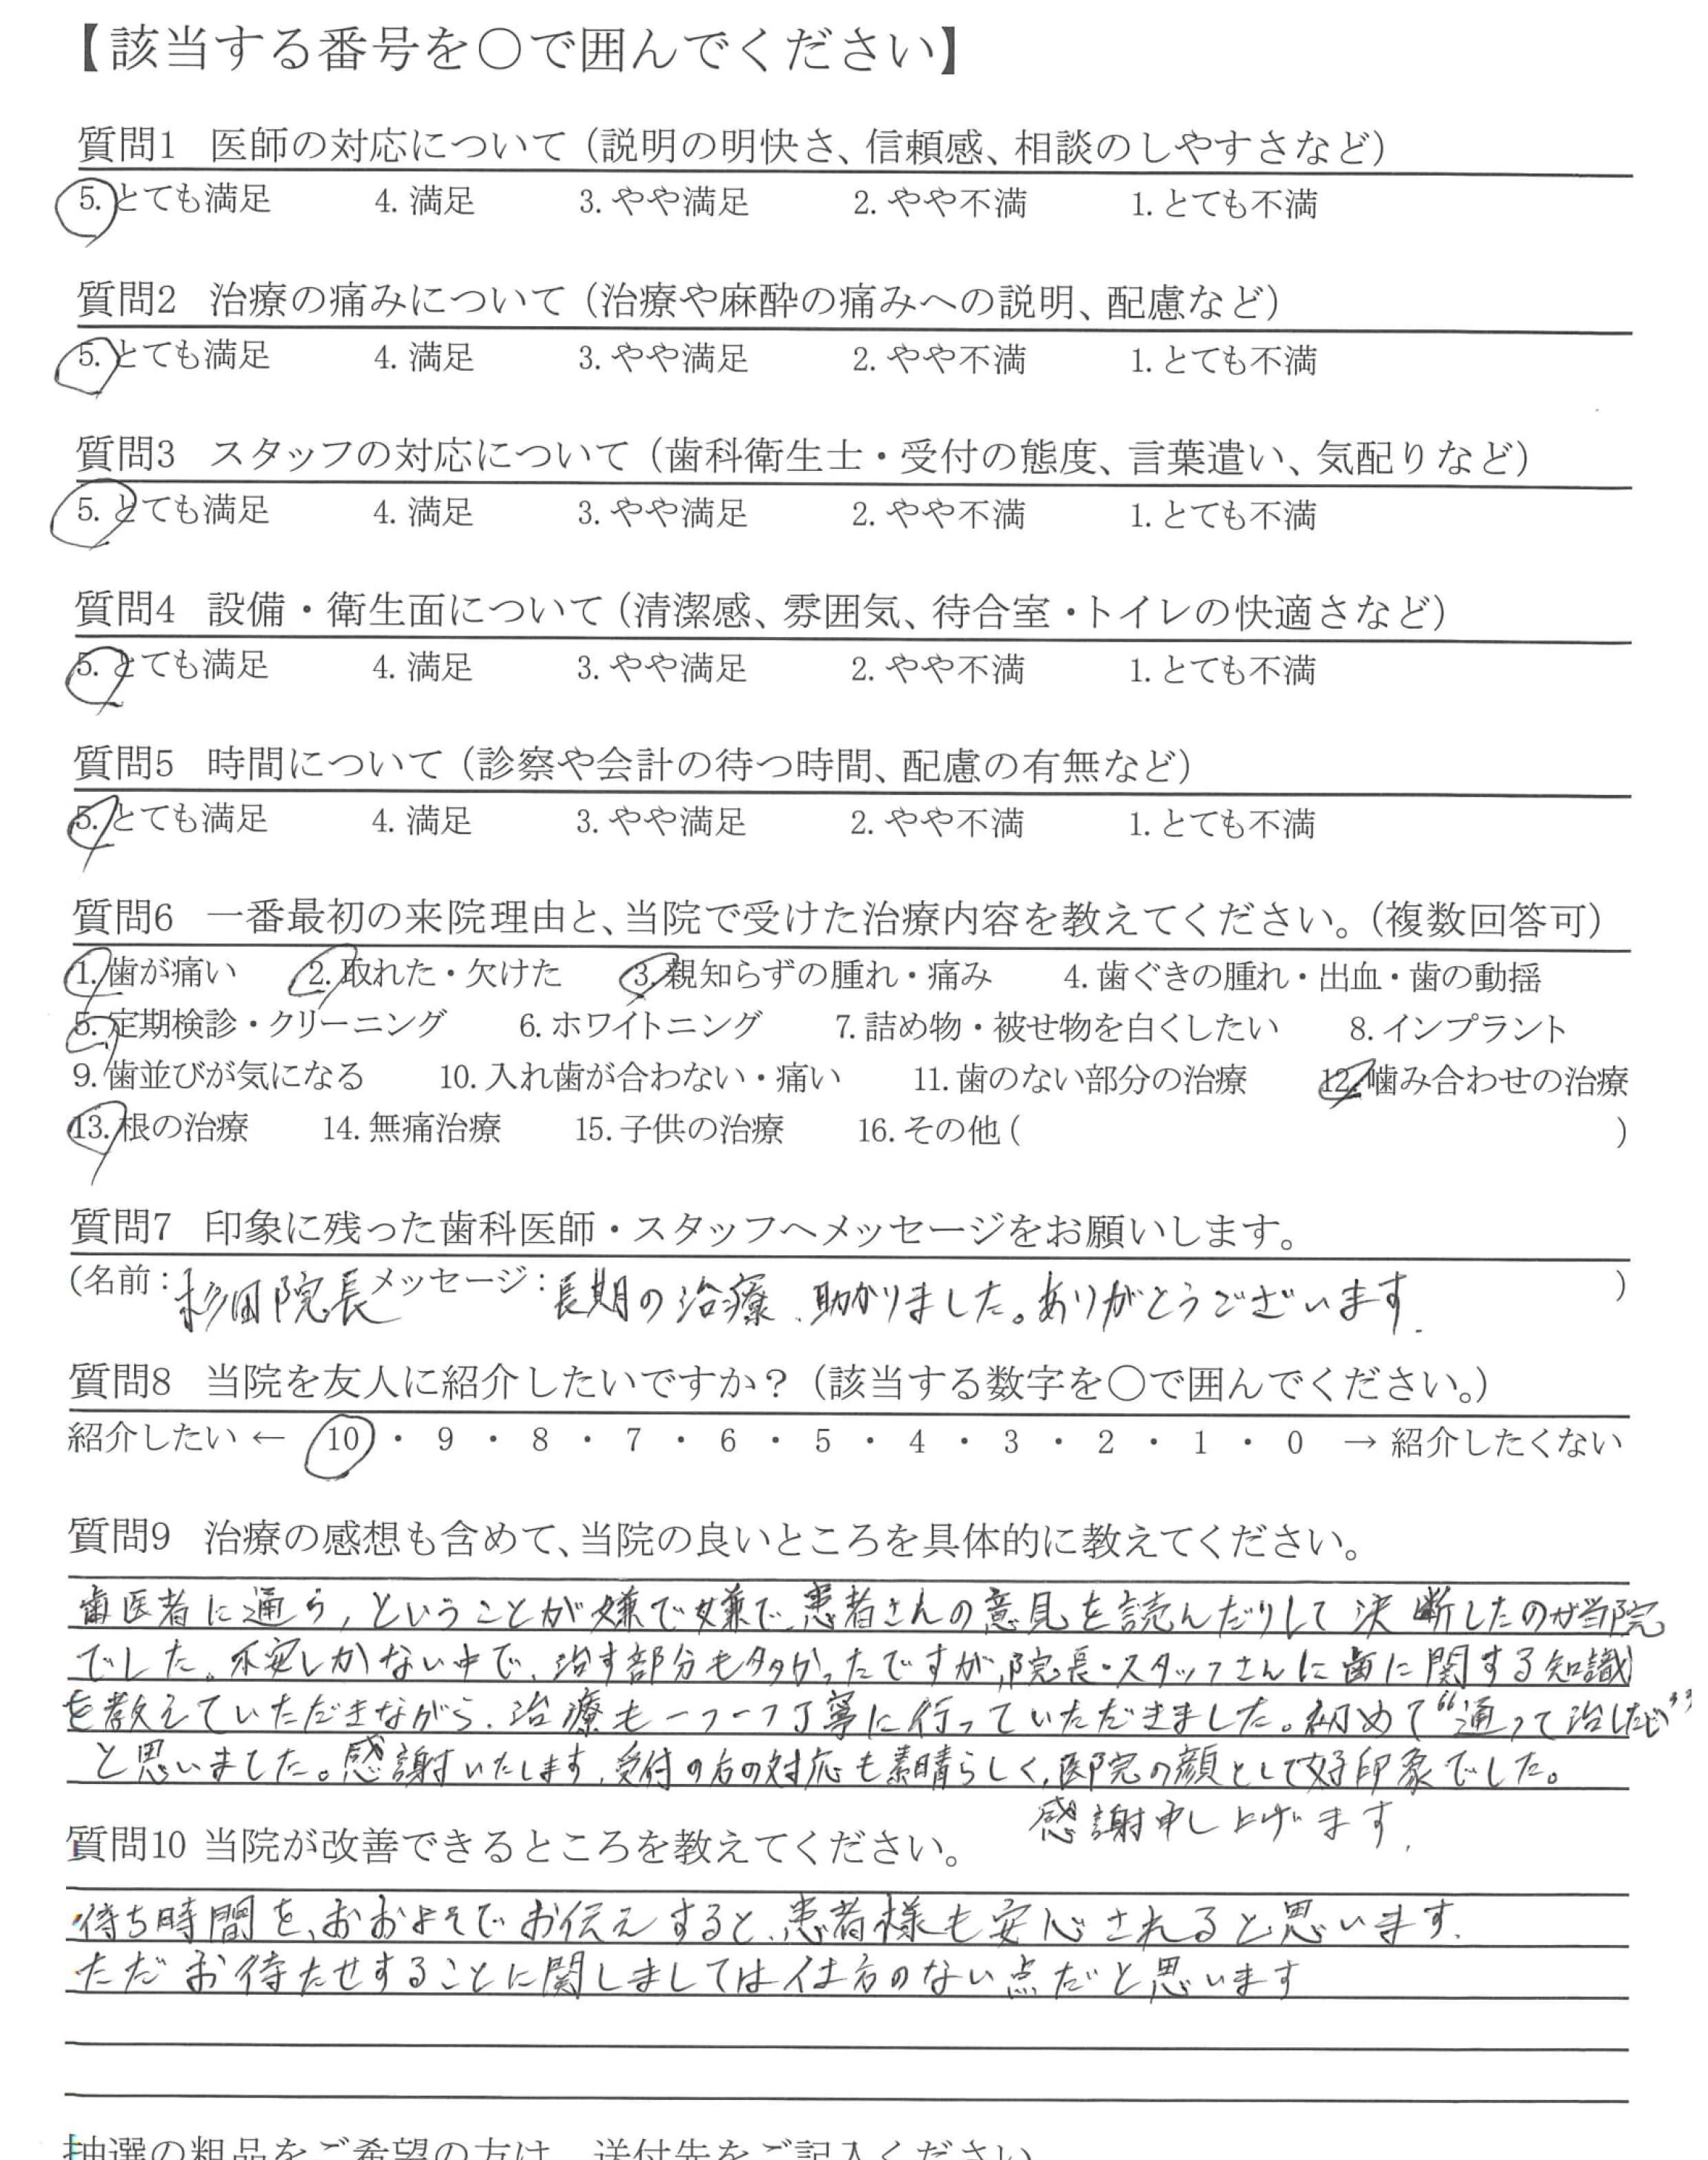 【該当する番号を〇で囲んでください】
質問1 医師の対応について（説明の明快さ、信頼感、相談のしやすさなど）
5. とても満足 4. 満足 3. やや満足 2. やや不満 1. とても不満
質問2 治療の痛みについて（治療や麻酔の痛みへの説明、配慮など）
5. とても満足 4. 満足 3. やや満足 2. やや不満 1. とても不満
質問3 スタッフの対応について（歯科衛生士・受付の態度、言葉遣い、気配りなど）
5. とても満足 4. 満足 3. やや満足 2. やや不満 1. とても不満
質問4 設備・衛生面について（清潔感、雰囲気、待合室・トイレの快適さなど）
5. とても満足 4. 満足 3. やや満足 2. やや不満 1. とても不満
質問5 時間について（診察や会計の待つ時間、配慮の有無など）
5. とても満足 4. 満足 3. やや満足 2. やや不満 1. とても不満
質問6 一番最初の来院理由と、当院で受けた治療内容を教えてください。（複数回答可）
1. 歯が痛い 2. 取れた・欠けた 3. 親知らずの腫れ・痛み 4. 歯ぐきの腫れ・出血・歯の動揺
5. 定期検診・クリーニング 6. ホワイトニング 7. 詰め物・被せ物を白くしたい 8. インプラント
9. 歯並びが気になる 10. 入れ歯が合わない・痛い 11. 歯のない部分の治療 12. 噛み合わせの治療
13. 根の治療 14. 無痛治療 15. 子供の治療 16. その他（ ）
質問7 印象に残った歯科医師・スタッフへメッセージをお願いします。
（名前：杉田院長 メッセージ：長期の治療、助かりました。ありがとうございます。）
質問8 当院を友人に紹介したいですか？（該当する数字を〇で囲んでください。）
紹介したい ← 10 ・ 9 ・ 8 ・ 7 ・ 6 ・ 5 ・ 4 ・ 3 ・ 2 ・ 1 ・ 0 → 紹介したくない
質問9 治療の感想も含めて、当院の良いところを具体的に教えてください。
歯医者に通う、ということが嫌で嫌で、患者さんの意見を読んだりして決断したのが当院
でした。不安しかない中で、治す部分も多かったですが、院長・スタッフさんに歯に関する知識
を教えていただきながら、治療も一つ一つ丁寧に行っていただきました。初めて“通って治したい”
と思いました。感謝いたします。受付の方の対応も素晴らしく、医院の顔として好印象でした。
感謝申し上げます。
質問10 当院が改善できるところを教えてください。
待ち時間を、おおよそでお伝えすると、患者様も安心されると思います。
ただお待たせすることに関しましては仕方のない点だと思います
抽選の粗品をご希望の方は、送付先をご記入ください